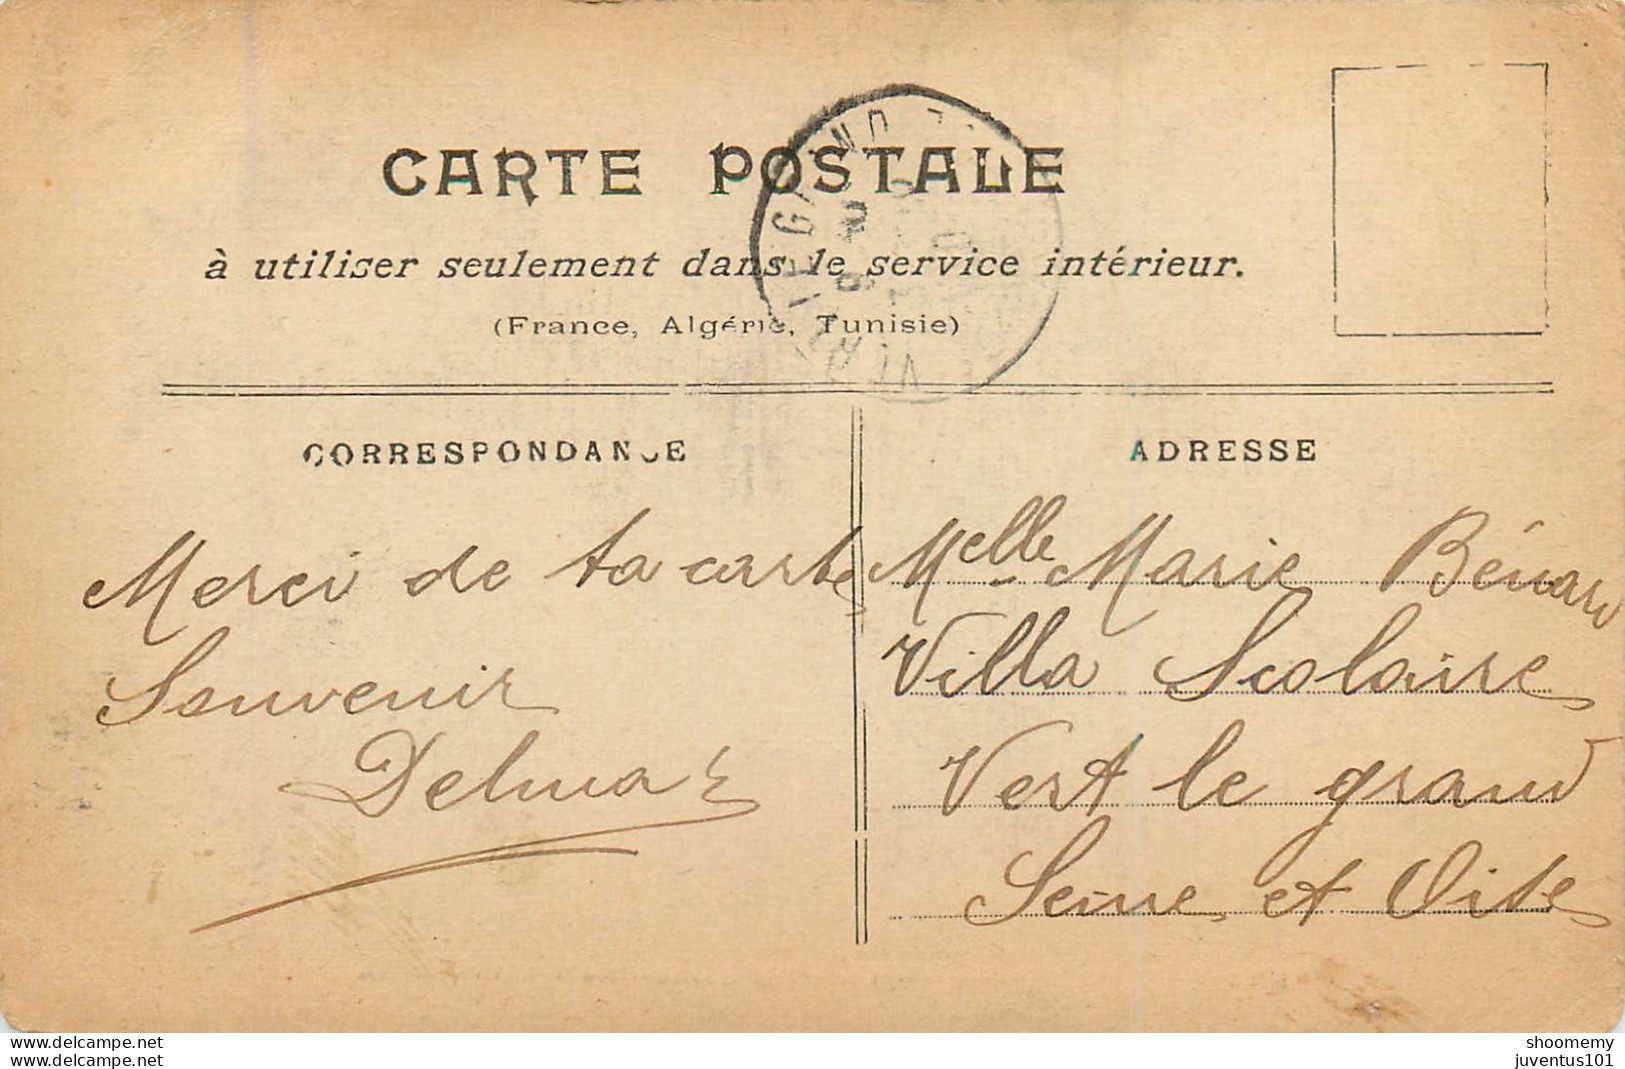 CARTE POSTALE
à utiliser seulement dans le service intérieur.
(France, Algérie, Tunisie)
VERT LE GRAND
CORRESPONDANCE
Merci de ta carte
Souvenir
Delmas
ADRESSE
Melle Marie Bénard
Villa Scolaire
Vert le grand
Seine et Oise
www.delcampe.net
www.delcampe.net
shoomemy
juventus101